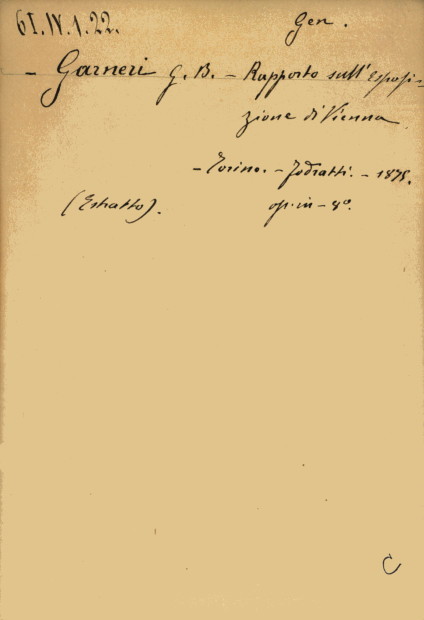 61.IV.1.22.
Gen.
- Garneri G. B. - Rapporto sull'Esposi-
zione di Vienna
- Torino. - Fodratti. - 1875.
(Estratto). op. in - 8°.
C